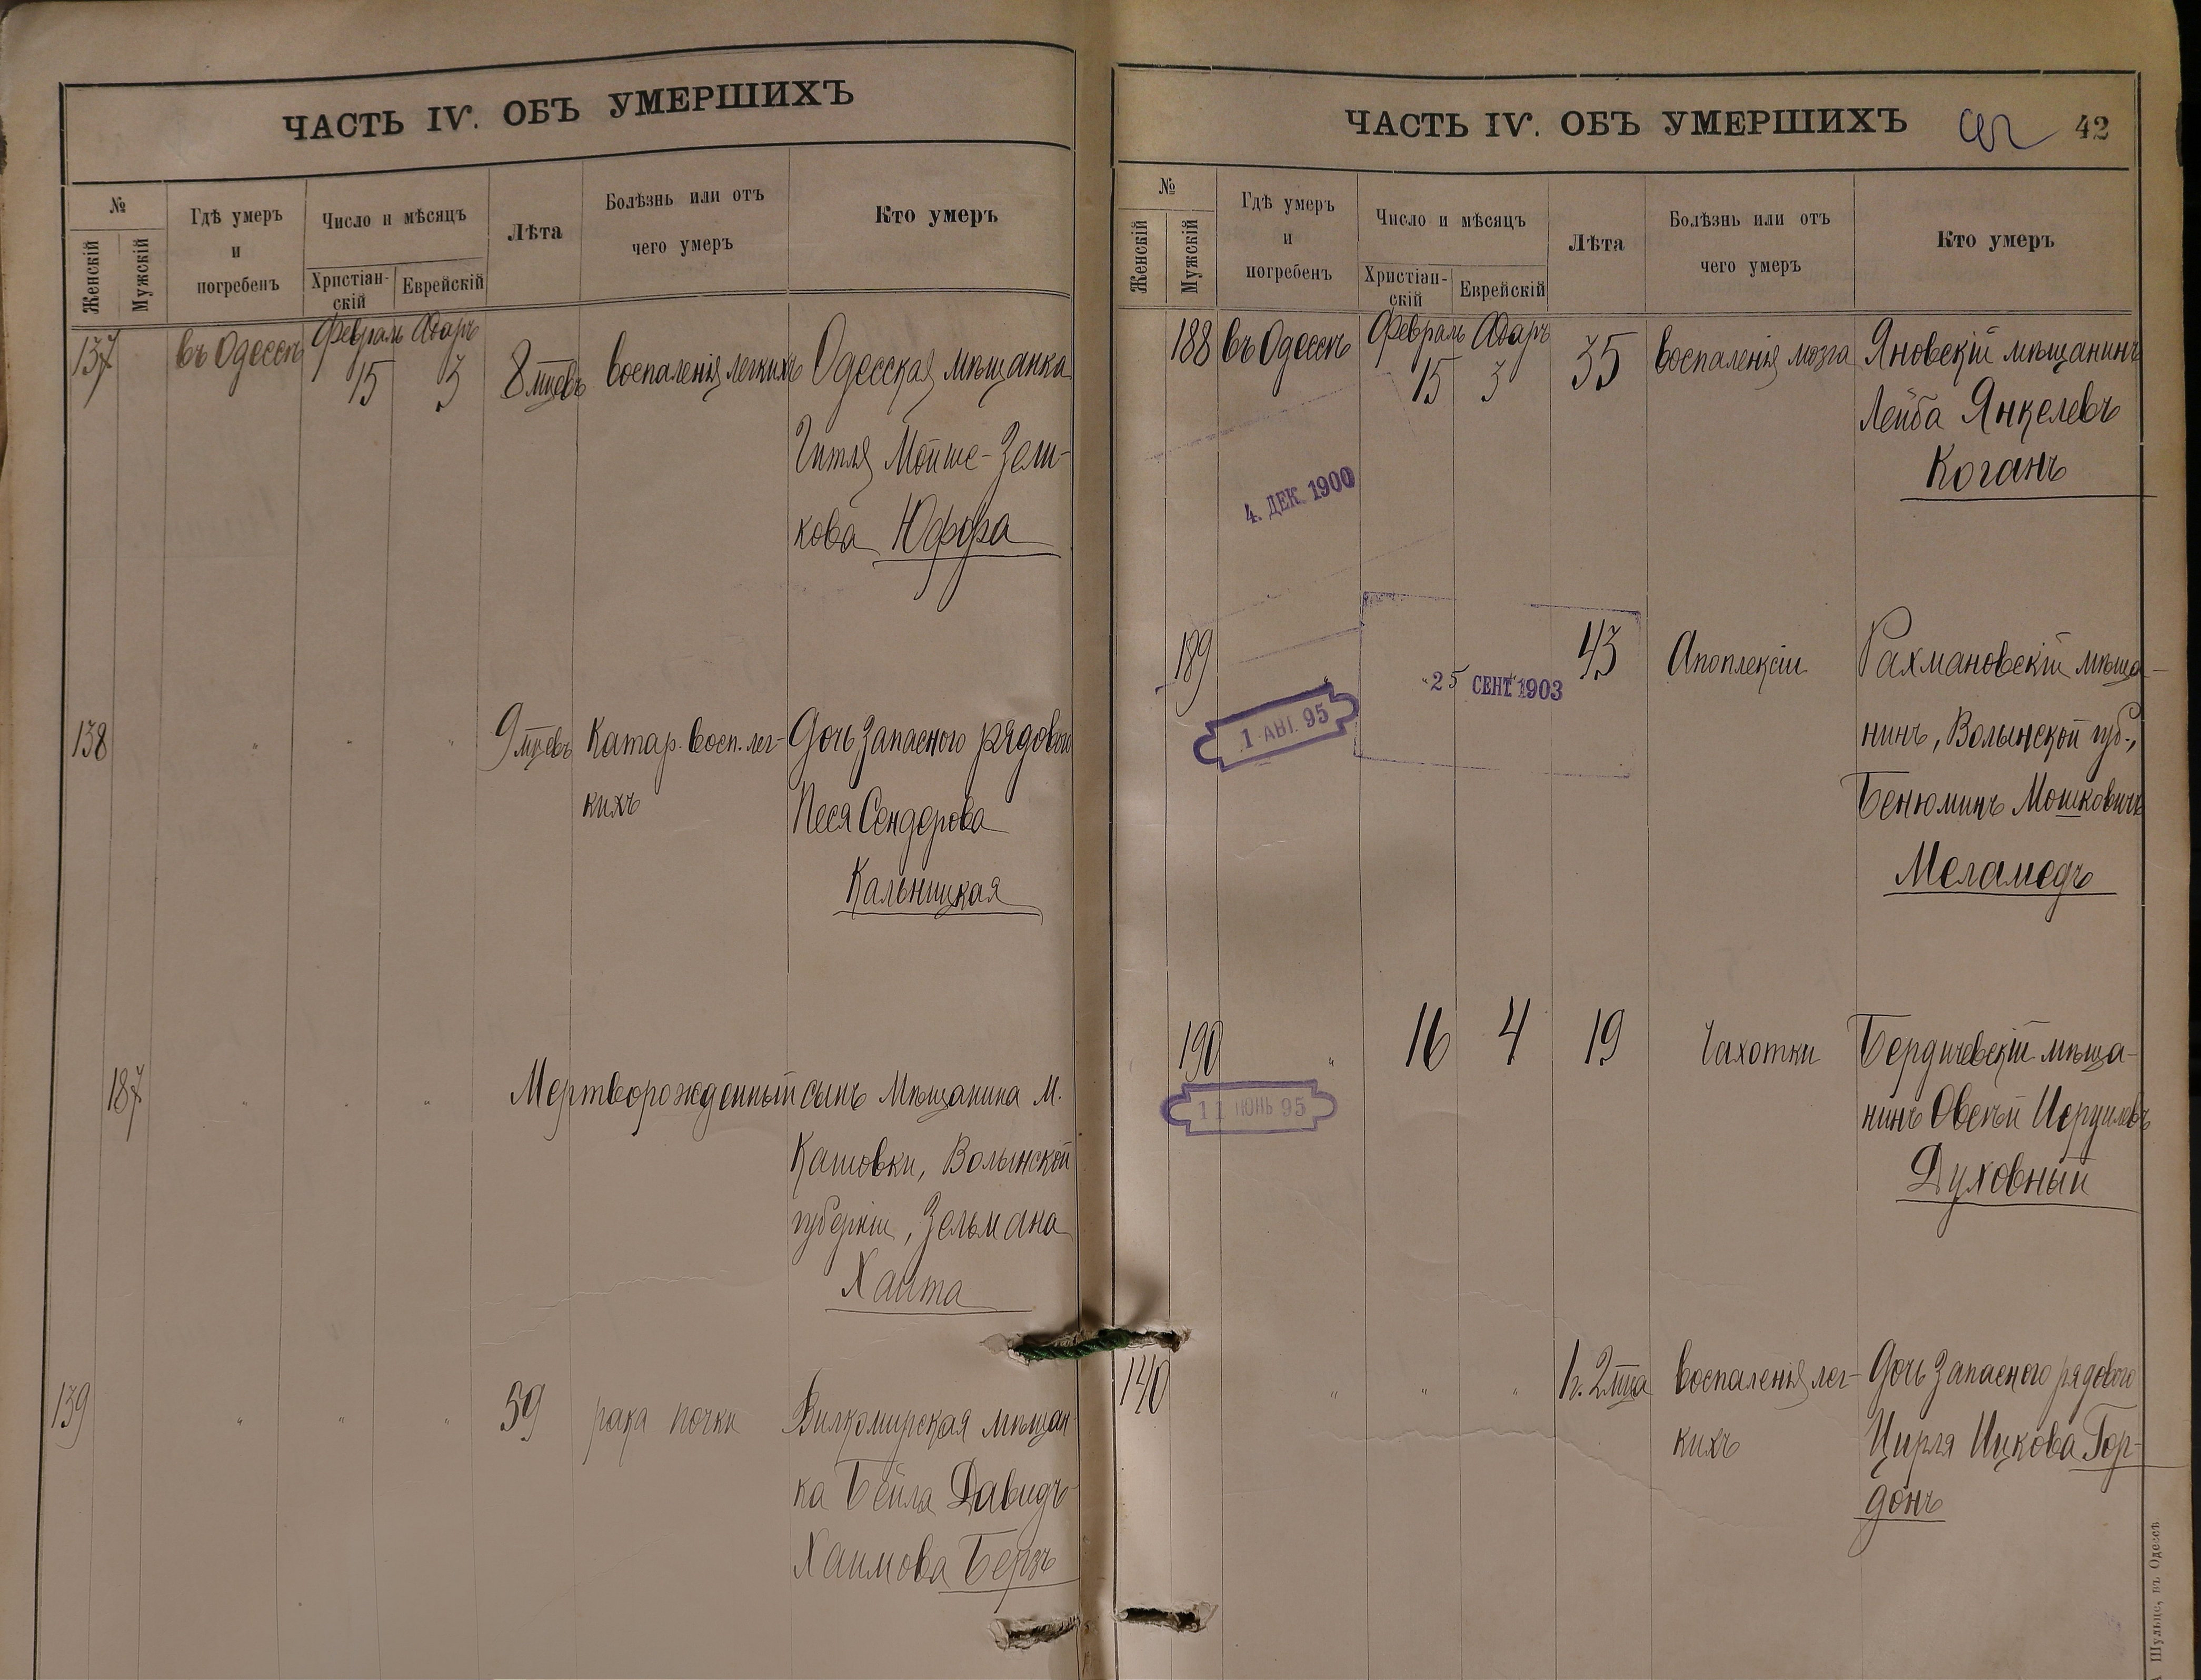 ЧАСТЬ IV. ОБЪ УМЕРШИХЪ
№
Женскій
Мужскій
Гдѣ умеръ
и
погребенъ
Число и мѣсяцъ
Христіан-
скій
Еврейскій
Лѣта
Болѣзнь или отъ
чего умеръ
Кто умеръ
137 въ Одессѣ Февраль Адаръ
15 3 8 мцевъ воспаленія легкихъ Одесская мѣщанка
Гитля Мойше-Зели-
кова Юффа
138 " " " 9 мцевъ Катар. восп. лег- Дочь запасного рядового
кихъ Песя Сендерова
Кальницкая
187 " " " Мертворожденный сынъ мѣщанина м.
Кашовки, Волынской
губерніи, Зельмана
Хаита
139 " " " 59 рака почки Вилкомирская мѣщан-
ка Бейла Давидъ-
Хаимова Берзъ
ЧАСТЬ IV. ОБЪ УМЕРШИХЪ 42
№
Женскій
Мужскій
Гдѣ умеръ
и
погребенъ
Число и мѣсяцъ
Христіан-
скій
Еврейскій
Лѣта
Болѣзнь или отъ
чего умеръ
Кто умеръ
188 въ Одессѣ Февраль Адаръ
15 3 35 воспаленія мозга Яновскій мѣщанинъ
Лейба Янкелевъ
Коганъ
4. ДЕК. 1900
189 " " 43 Апоплексіи Рахмановскій мѣща-
25 СЕНТ. 1903
1 АВГ. 95
нинъ, Волынской губ.,
Бенюминъ Мошковичъ
Меламедъ
190 " 16 4 19 Чахотки Бердичевскій мѣща-
11 ІЮНЬ 95
нинъ Овсѣй Исрулевъ
Духовный
140 " " " 1 г. 2 мца воспаленія лег- Дочь запасного рядового
кихъ Цирля Ицкова Гор-
донъ
Шульце, въ Одессѣ